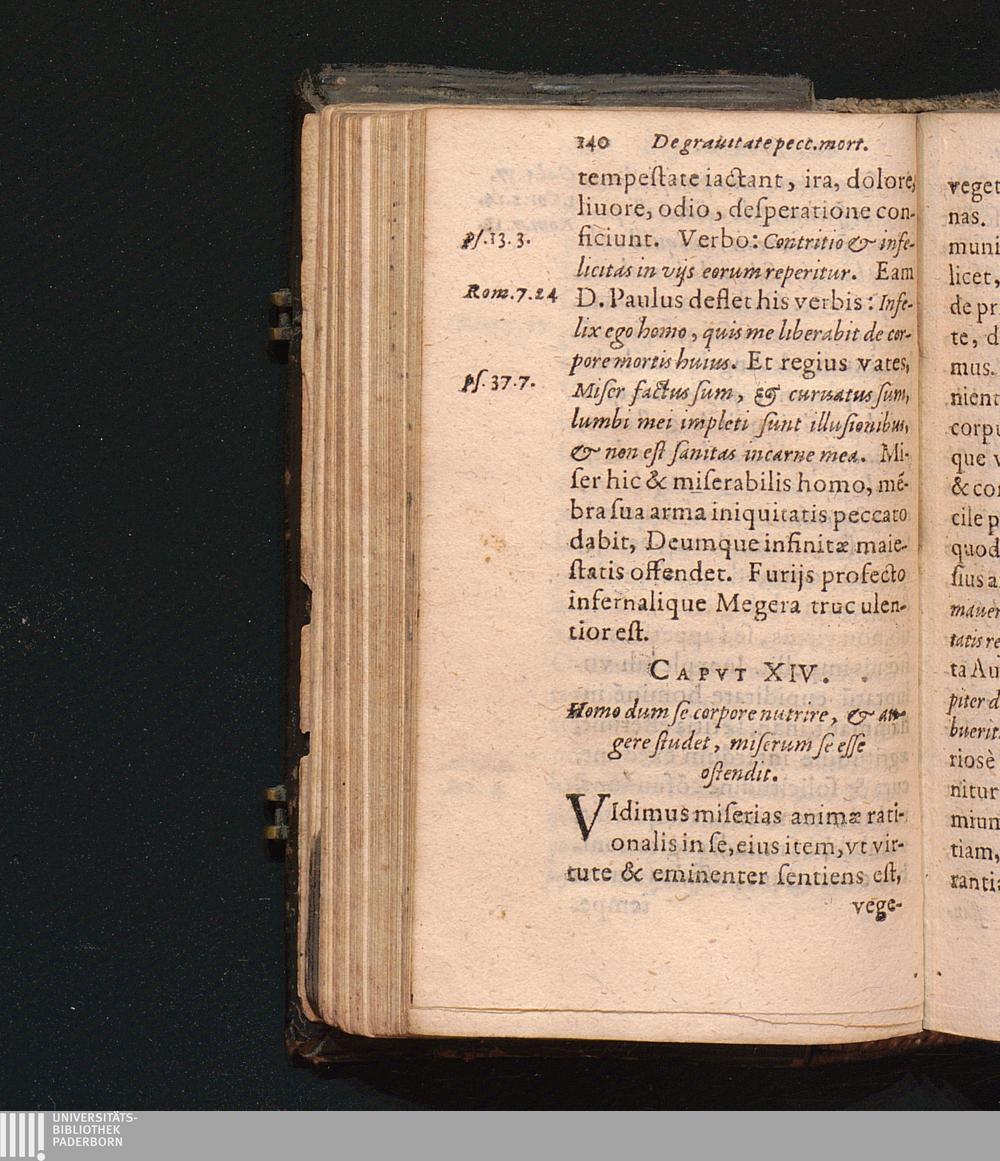 140 De grauitate pecc. mort.
tempeſtate iactant, ira, dolore,
liuore, odio, deſperatione con-
pſ. 13. 3.
ficiunt. Verbo: Contritio & infe-
licitas in vijs eorum reperitur. Eam
Rom. 7. 24
D. Paulus deflet his verbis: Infe-
lix ego homo, quis me liberabit de cor-
pore mortis huius. Et regius vates,
pſ. 37. 7.
Miſer factus ſum, & curuatus ſum,
lumbi mei impleti ſunt illuſionibus,
& non eſt ſanitas in carne mea. Mi-
ſer hic & miſerabilis homo, mẽ-
bra ſua arma iniquitatis peccato
dabit, Deumque infinitæ maie-
ſtatis offendet. Furijs profecto
infernalique Megera truculen-
tior eſt.
CAPVT XIV.
Homo dum ſe corpore nutrire, & au-
gere ſtudet, miſerum ſe eſſe
oſtendit.
VIdimus miſerias animæ rati-
onalis in ſe, eius item, vt vir-
tute & eminenter ſentiens eſt,
vege-
veget
nas.
muni
licet,
de pr
te, d
mus.
nient
corpu
que v
& con
cile p
quod
ſius a
mauer
tatis re
ta Au
piter d
buerit
rioſè
nitur
mium
tiam,
rantia
UNIVERSITÄTS-
BIBLIOTHEK
PADERBORN